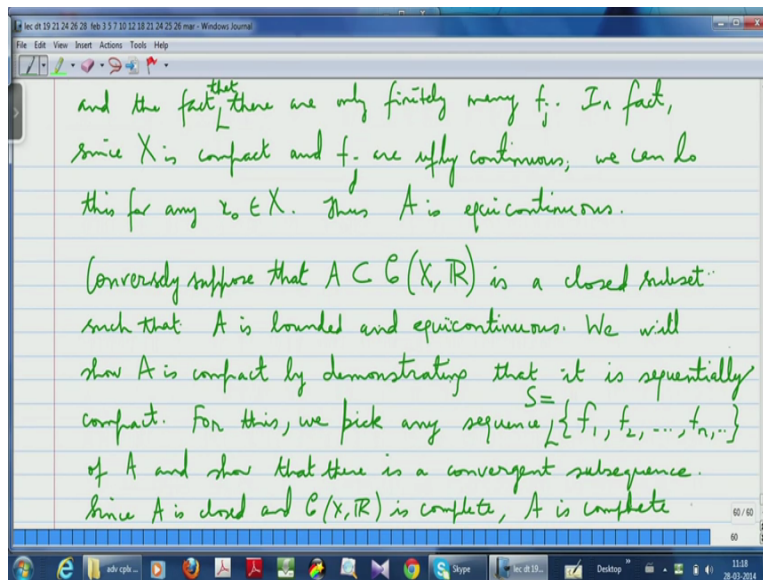 lec dt 19 21 24 26 28 feb 3 5 7 10 12 18 21 24 25 26 mar - Windows Journal
File Edit View Insert Actions Tools Help
and the fact that there are only finitely many f_j. In fact,
since X is compact and f_j are ufly continuous, we can do
this for any x_0 ∈ X. Thus A is equicontinuous.
Conversely suppose that A ⊂ C(X, ℝ) is a closed subset
such that A is bounded and equicontinuous. We will
show A is compact by demonstrating that it is sequentially
compact. For this, we pick any sequence S = {f_1, f_2, ..., f_n, ..}
of A and show that there is a convergent subsequence.
Since A is closed and C(X, ℝ) is complete, A is complete
60 / 60
60
adv cplx ...
Skype
lec dt 19...
Desktop
11:18
28-03-2014